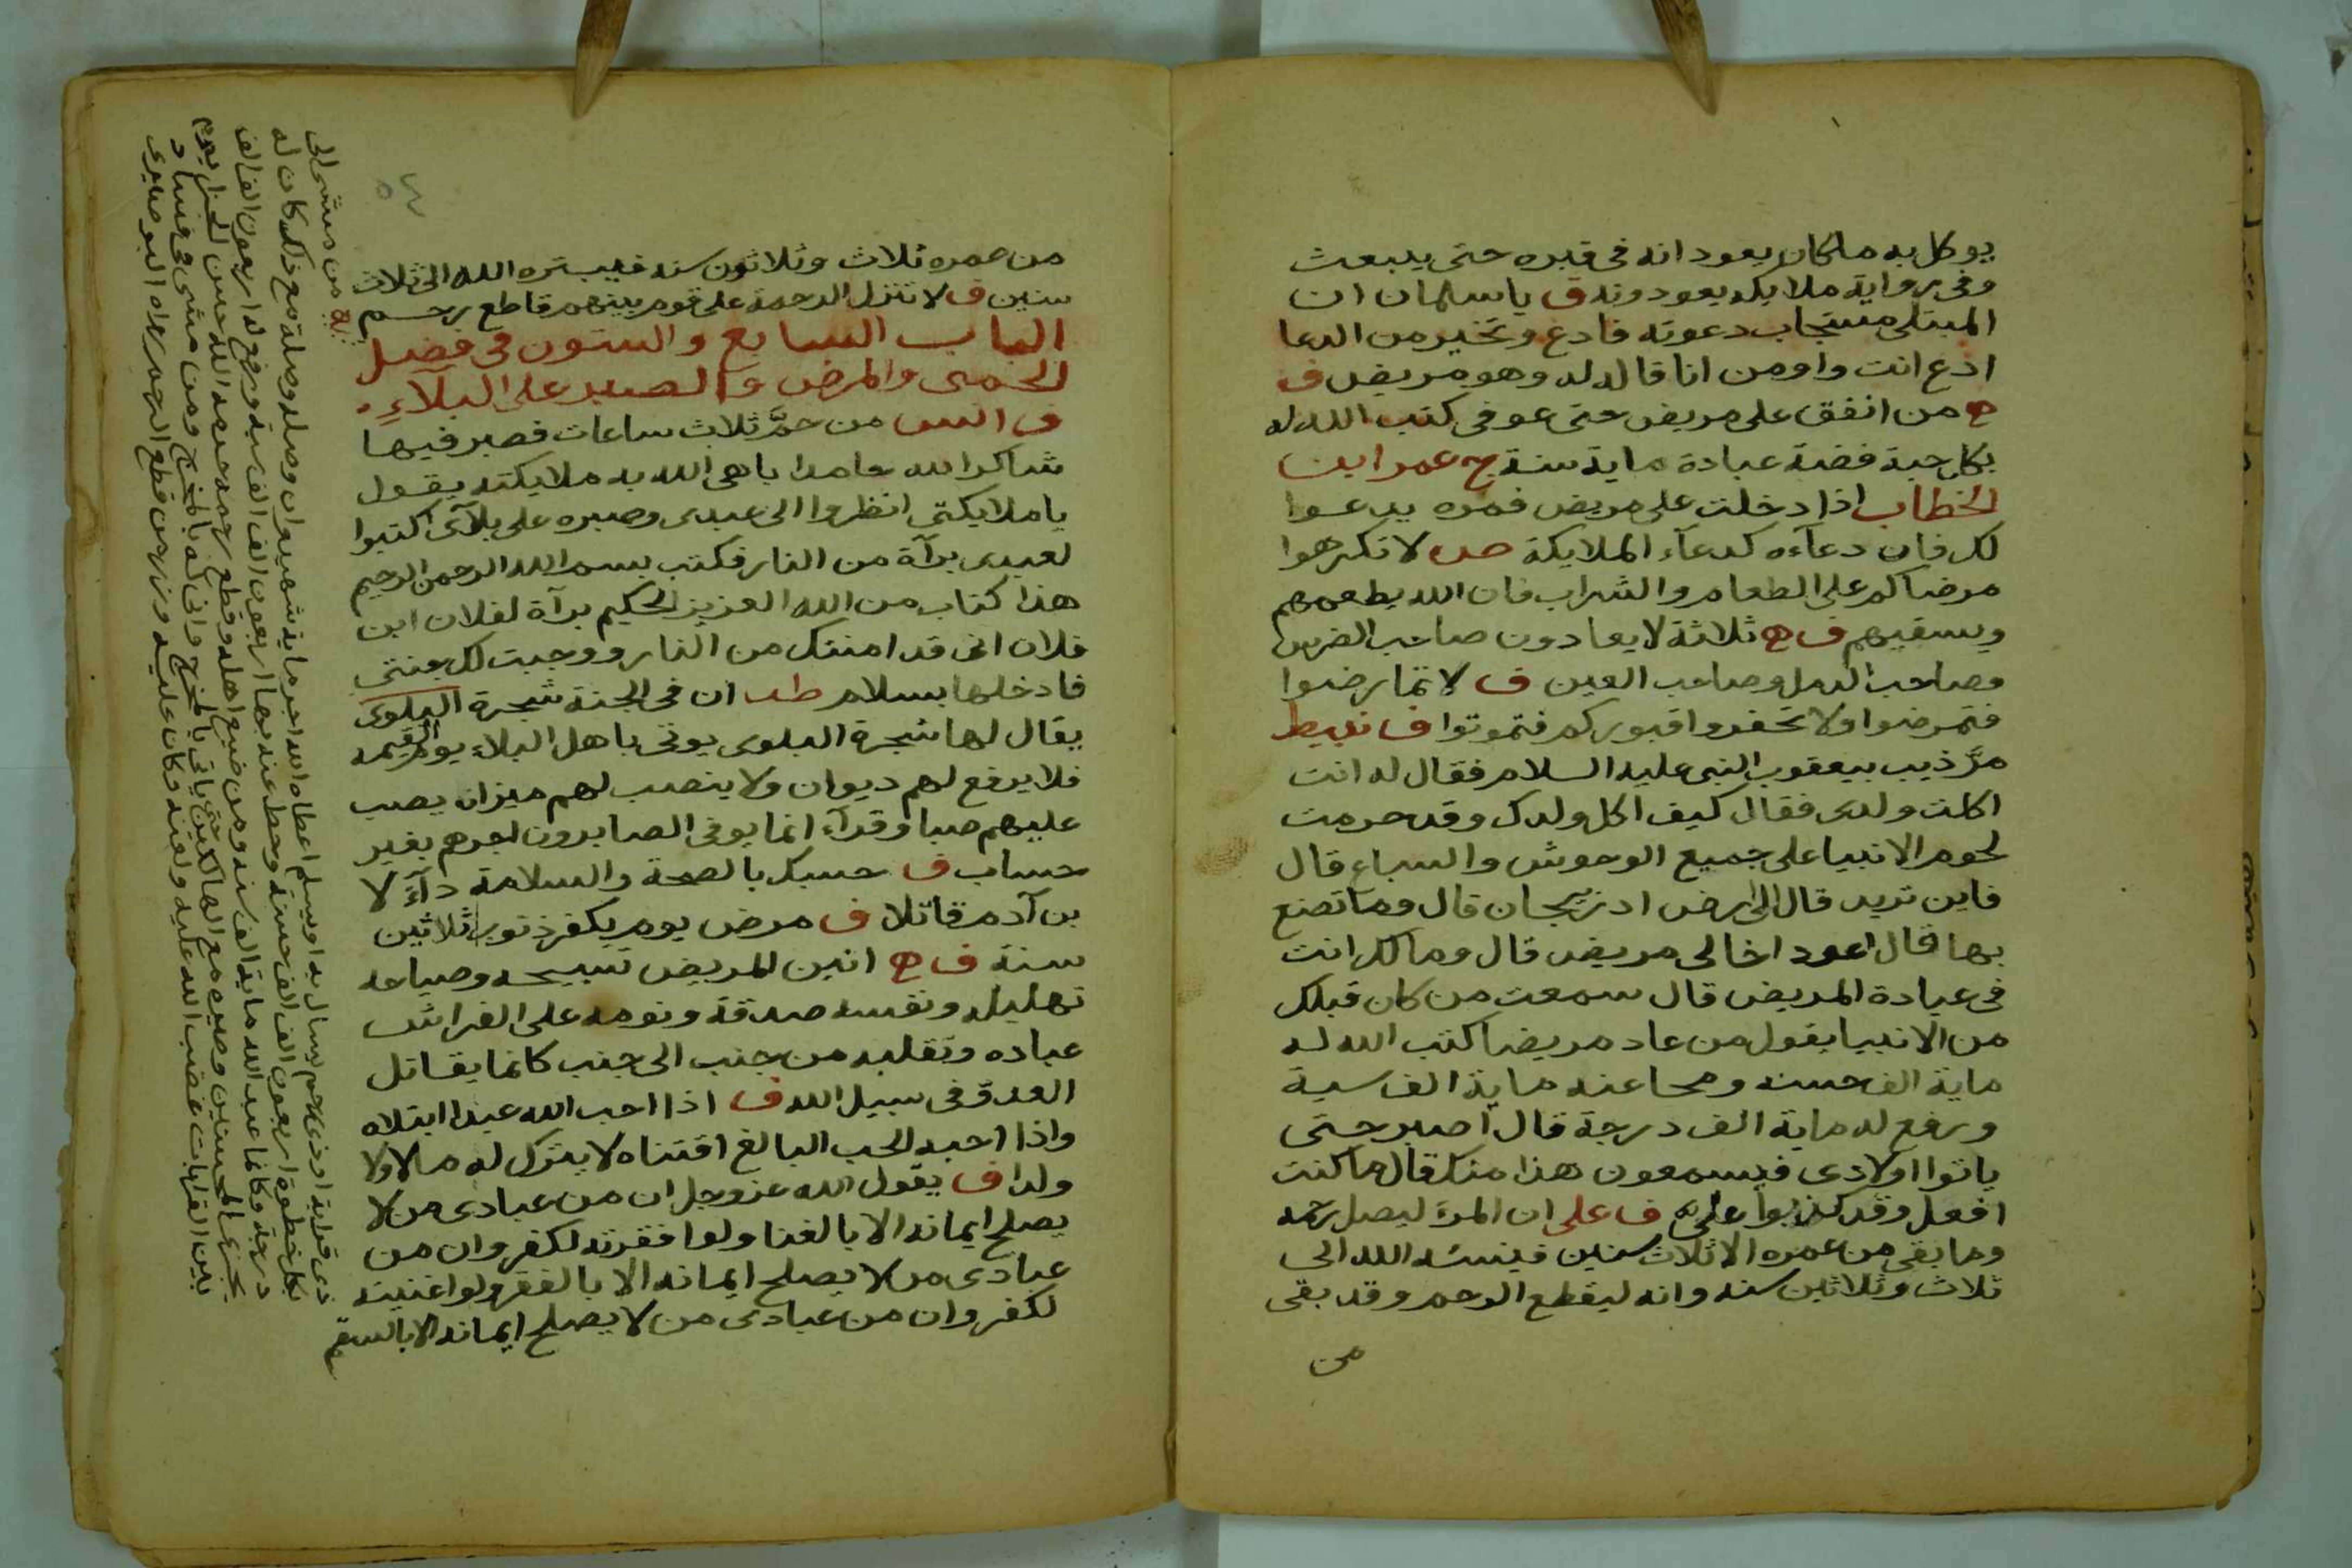 يوكل به ملكان يعودانه فى قبره حتى يبعث
وفى رواية ملايكه يعودونه ق ياسلمان ان
المبتلى مستجاب دعوته فادع وتخير من الدعا
ادع انت واومن انا قاله له وهو مريض ف
ه من انفق على مريض حتى عوفى كتب الله له
بكل حبة فضة عبادة ماية سنة ج عمر ابن
الخطاب اذا دخلت على مريض فمره يدعوا
لك فان دعآءه كدعآء الملايكة ص لا تكرهوا
مرضاكم على الطعام والشراب فان الله يطعمهم
ويسقيهم ف ه ثلاثة لا يعادون صاحب الضرس
وصاحب الدمل وصاحب العين ف لا تمارضوا
فتمرضوا ولا تحفروا قبوركم فتموتوا ف نبيط
مرّ ذيب بيعقوب النبى عليه السلام فقال له انت
اكلت ولدى فقال كيف اكل ولدك وقد حرمت
لحوم الانبيا على جميع الوحوش والسباع قال
فاين تريد قال الى ارض ادزبيجان قال وما تصنع
بها قال اعود اخا لى مريض قال وما لك انت
فى عيادة المريض قال سمعت من كان قبلك
من الانبيا يقول من عاد مريضا كتب الله له
ماية الف حسنه ومحا عنه ماية الف سية
ورفع له ماية الف درجة قال اصبر حتى
ياتوا اولادى فيسمعون هذا منك قال ما كنت
افعل وقد كذبوا علىّ ف على ان المرء ليصل رحمه
وما بقى من عمره الا ثلاث سنين فينسئه الله الى
ثلاث وثلاثين سنه وانه ليقطع الرحم وقد بقى
من
٥٤
من عمره ثلاث وثلاثون سنه فيبتره الله الى ثلاث
سنين ف لا تنزل الرحمة على قوم بينهم قاطع رحم
الباب السابع والستون فى فضل
الحمى والمرض والصبر على البلآءِ
ف انس من حمّ ثلاث ساعات فصبر فيها
شاكرا لله حامدا باهى الله به ملايكته يقول
يا ملايكتى انظروا الى عبدى وصبره على بلآى اكتبوا
لعبدى برآة من النار فكتب بسم الله الرحمن الرحيم
هذا كتاب من الله العزيز الحكيم برآة لفلان ابن
فلان انى قد امنتك من النار ووجبت لك جنتى
فادخلها بسلام طب ان فى الجنة شجرة البلوى
يقال لها شجرة البلوى يوتى باهل البلاء يوم القيمه
فلا يرفع لهم ديوان ولا ينصب لهم ميزان يصب
عليهم صبا وقرآء انما يوفى الصابرون اجرهم بغير
حساب ف حسبك بالصحة والسلامة دآءً لا
بن آدم قاتلا ف مرض يوم يكفر ذنوب ثلاثين
سنة ف ه انين المريض تسبيحه وصياحه
تهليله ونفسه صدقة ونومه على الفراش
عباده وتقلبه من جنب الى جنب كانما يقاتل
العدوّ فى سبيل الله ف اذا احب الله عبدا ابتلاه
واذا احبه الحب البالغ اقتناه لا يترك له مالا ولا
ولدا ف يقول الله عز وجل ان من عبادى من لا
يصلح ايمانه الا بالغنا ولوا فقرته لكفر وان من
عبادى من لا يصلح ايمانه الا بالفقر ولو اغنيته
لكفر وان من عبادى من لا يصلح ايمانه الا بالسقم
من مشى الى
ذى قرابة او ذى رحم يسال به او يسلم اعطاه الله اجر ماية شهيد وان وصله وصلة مع ذلك كان له
بكل خطوة اربعون الف الف حسنة وحط عنه بها اربعون الف الف سية ورفع له اربعون الف الف
درجة وكانما عبد الله ماية الف سنه ومن ضيع اهله وقطع رحمه حرمه الله حسن الجزا يوم
يجزى المحسنين وصيره مع الهالكين حتى ياتى بالمخرج وانى له بالمخرج ومن مشى فى فساد
بين القرابات غضب الله عليه ولعنه وكان عليه وزر من قطع الرحم رواه البوصيرى